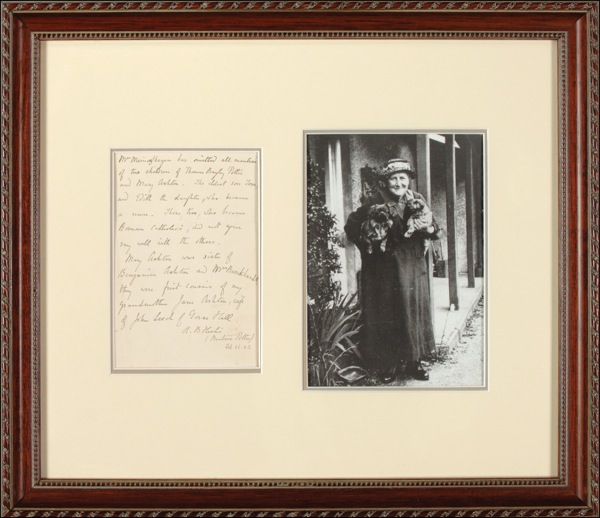 Mr Meinertzhagen has omitted all mention
of two children of Thomas Bayley Potter
and Mary Ashton. The eldest son Tom
and Edith the daughter, who became
a nun. These two, who became
Roman Catholics, did not get
very well with the others.
Mary Ashton was sister of
Benjamin Ashton and Mrs
they were first cousins of my
grandmother Jane Ashton, wife
of John Leech of Gorse Hall.
H. B. Heelis
(Beatrix Potter)